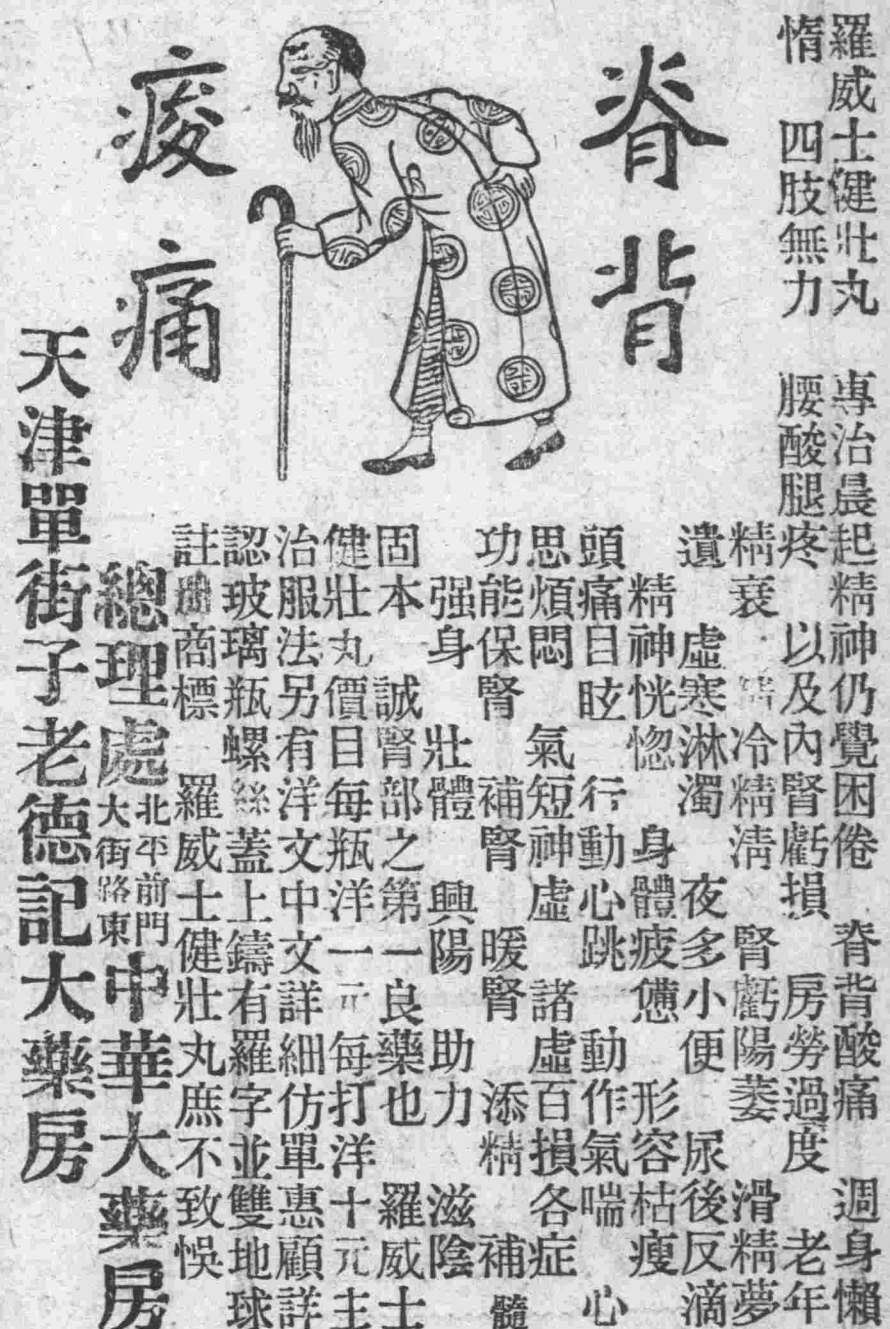 脊背
痠痛
羅威士健壯丸 專治晨起精神仍覺困倦 脊背酸痛 週身懶
惰 四肢無力 腰酸腿疼 以及內腎虧損 房勞過度 老年
精衰 冷精清 腎虧陽萎 滑精夢
遺 虛寒淋濁 夜多小便 尿後反滴
精神恍惚 身體疲憊 形容枯瘦
頭痛目眩 行動心跳 動作氣喘 心
思煩悶 氣短神虛 諸虛百損各症
功能保腎 補腎 暖腎 添精 補髓
强身 壯體 興陽 助力 滋陰
固本 誠腎部之第一良藥也 羅威士
健壯丸價目每瓶洋一元每打洋十元主
治服法另有洋文中文詳細仿單惠顧詳
認玻璃瓶螺絲蓋上鑄有羅字並雙地球
註册商標 羅威士健壯丸庶不致悞
總理處 北平前門大街路東 中華大藥房
天津單街子老德記大藥房